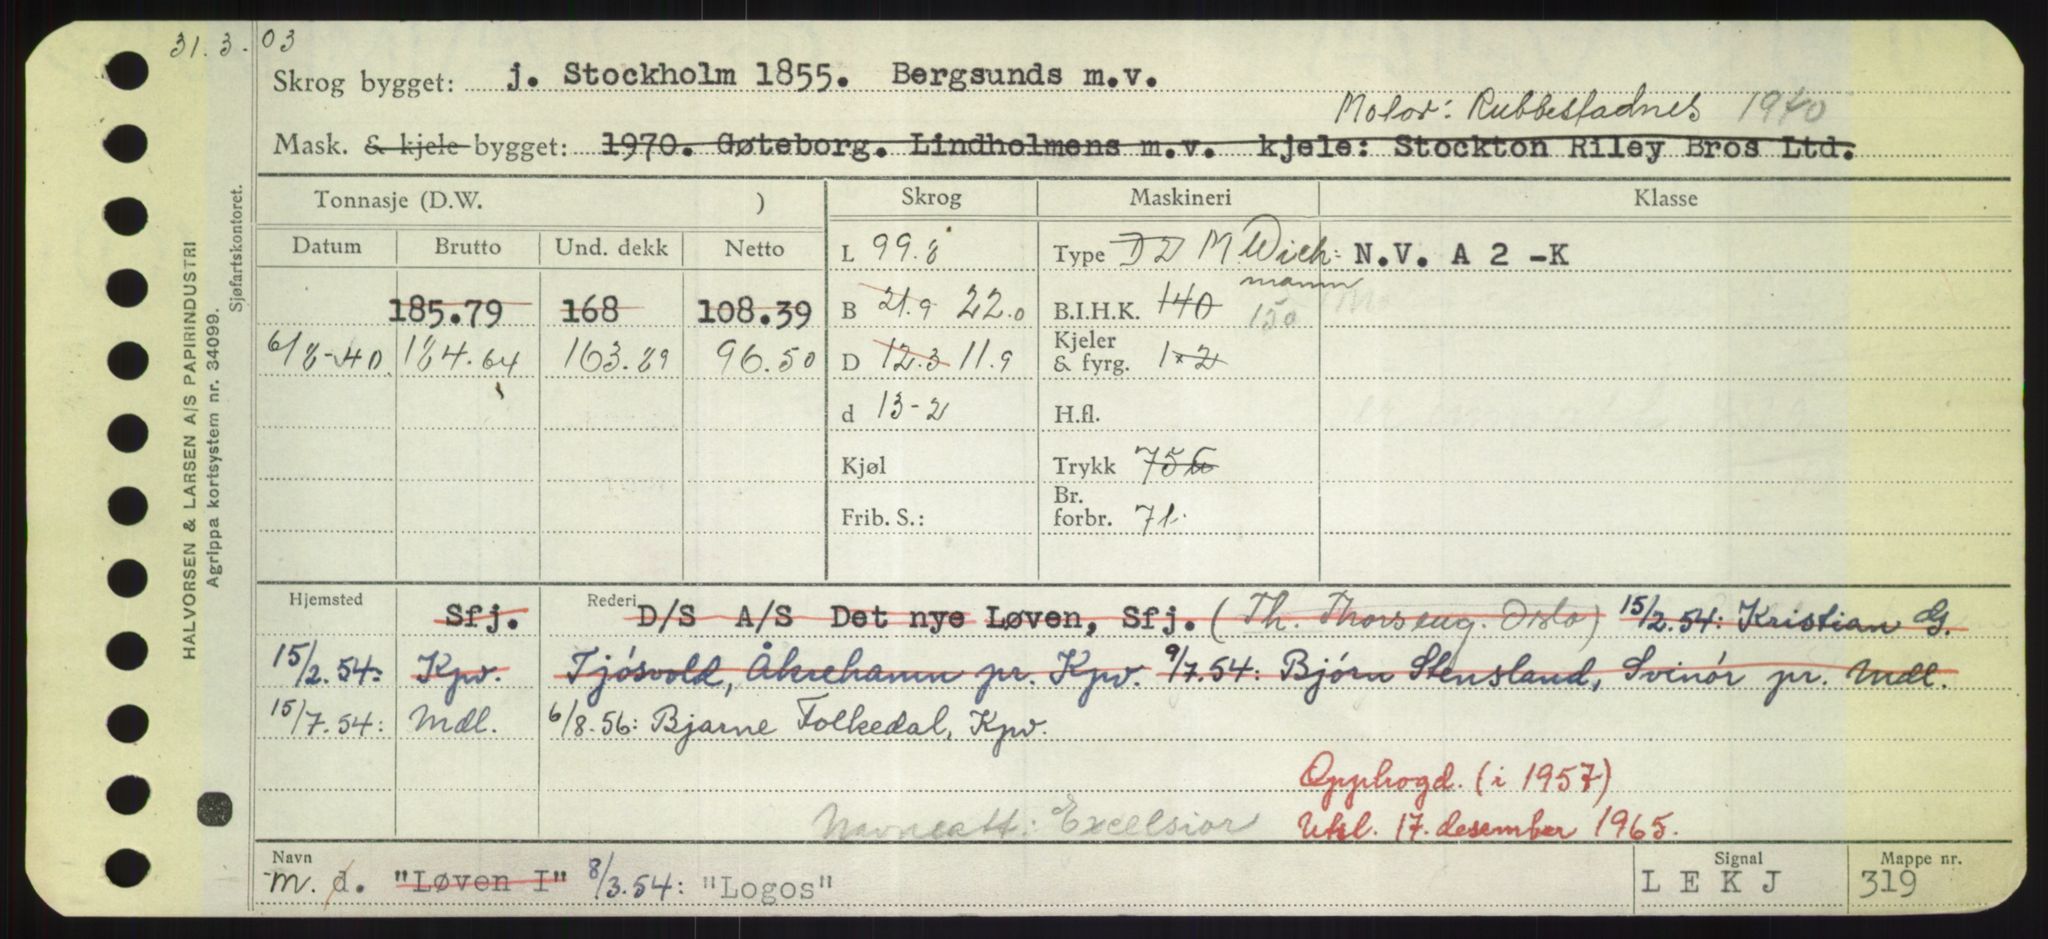 31.3.03
Skrog bygget: j. Stockholm 1855. Bergsunds m.v.
Motor: Rubbestadnes 1940
Mask. & kjele bygget: 1970. Gøteborg. Lindholmens m.v. kjele: Stockton Riley Bros Ltd.
Tonnasje (D.W. ) Skrog Maskineri Klasse
Datum Brutto Und. dekk Netto L 99.8 Type D2 M Wich= N.V. A 2 -K
mann
185.79 168 108.39 B 21.9 22.0 B.I.H.K. 140 150
6/8-40. 184.64 163.89 96.50 D 12.3 11.9 Kjeler & fyrg. 1 × 2
d 13-2 H.fl.
Kjøl Trykk 75 ℔
Frib. S.: Br. forbr. 7t.
Hjemsted Sfj. Rederi D/S A/S Det nye Løven, Sfj. (Th. Thorseng. Oslo) 15/2.54: Kristian G.
15/2.54: Kpv. Tjósvold, Åkrehamn pr. Kpv. 9/7.54: Bjórn Stensland, Svinór pr. Mdl.
15/7.54: Mdl. 6/8.56: Bjarne Folkedal, Kpv.
Opphogd. (i 1957)
Navneatt: Excelsior Utsl. 17. desember 1965.
Navn m. d. "Løven I" 8/3.54: "Logos" Signal L E K J Mappe nr. 319
HALVORSEN & LARSEN A/S PAPIRINDUSTRI
Agrippa kortsystem nr. 34099.
Sjøfartskontoret.